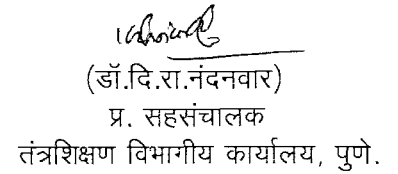 (डॉ.दि.रा.नंदनवार)
प्र. सहसंचालक
तंत्रशिक्षण विभागीय कार्यालय, पुणे.